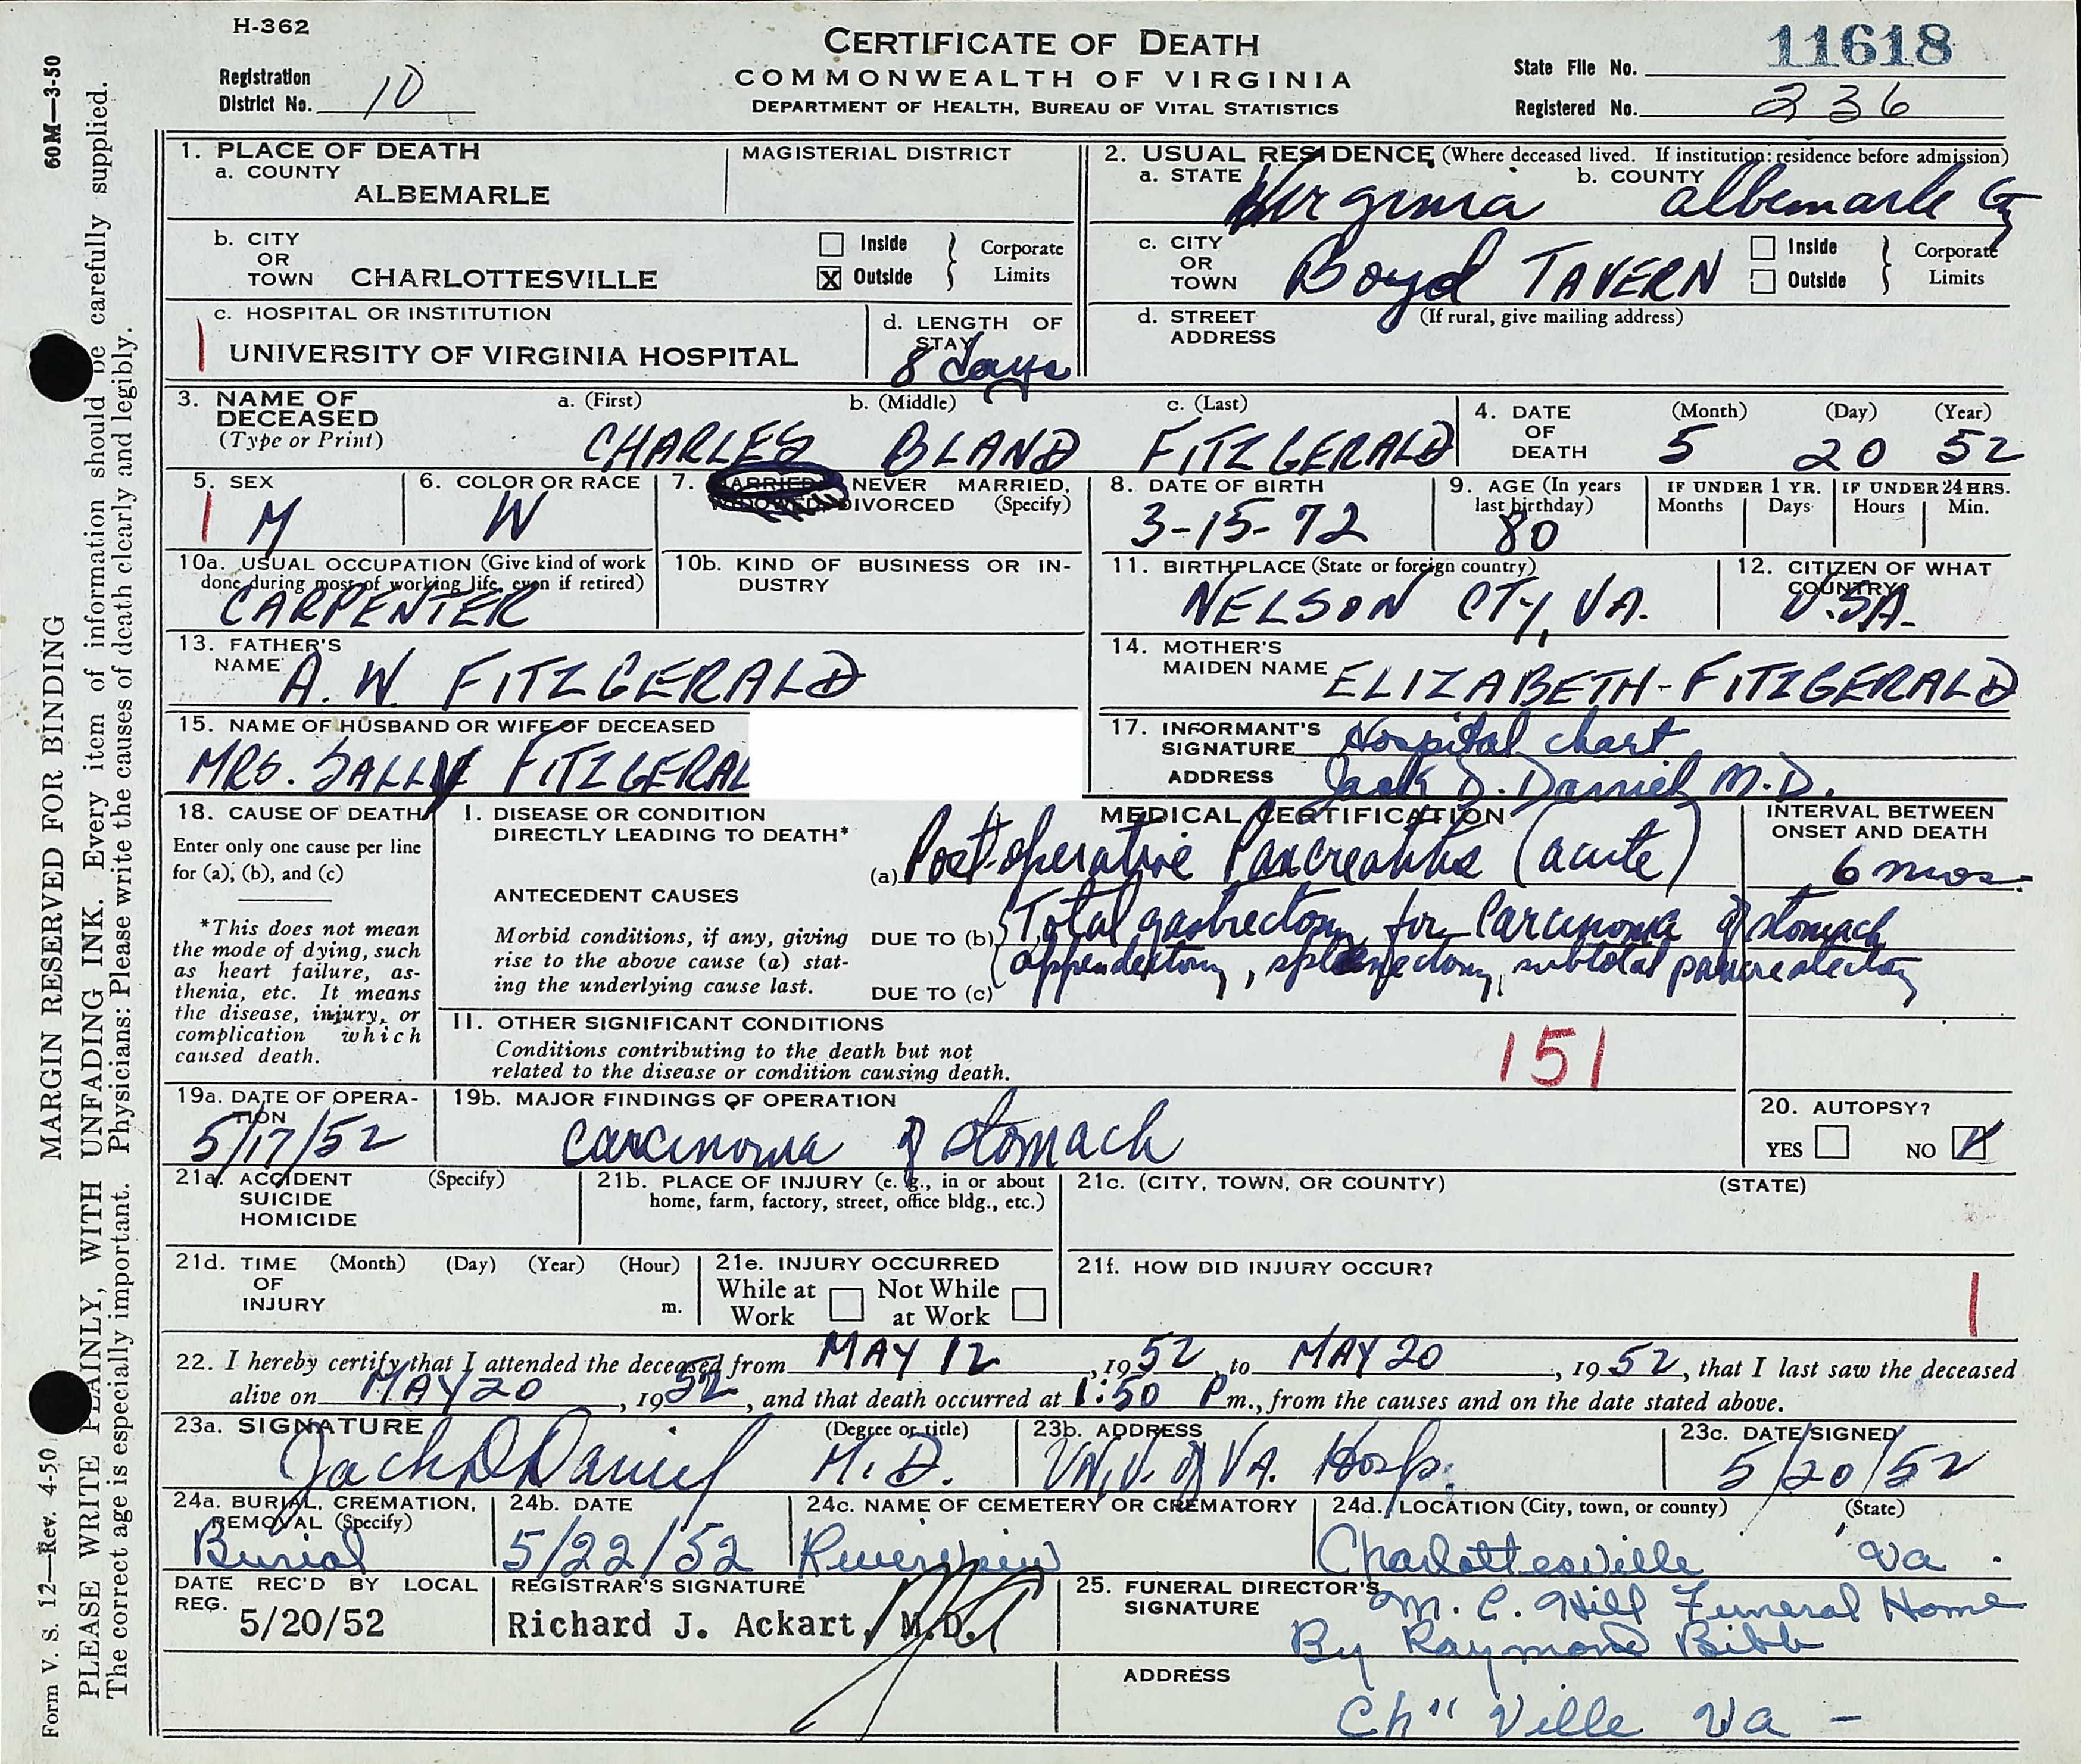 H-362
CERTIFICATE OF DEATH
COMMONWEALTH OF VIRGINIA
DEPARTMENT OF HEALTH, BUREAU OF VITAL STATISTICS
Registration District No. 10
State File No. 11618
Registered No. 236
60M—3-50
MARGIN RESERVED FOR BINDING
PLEASE WRITE PLAINLY, WITH UNFADING INK. Every item of information should be carefully supplied.
The correct age is especially important. Physicians: Please write the causes of death clearly and legibly.
Form V. S. 12—Rev. 4-50
1. PLACE OF DEATH
a. COUNTY
ALBEMARLE
MAGISTERIAL DISTRICT
2. USUAL RESIDENCE (Where deceased lived. If institution: residence before admission)
a. STATE Virginia b. COUNTY albemarle Cty
b. CITY OR TOWN CHARLOTTESVILLE
Inside
X Outside
Corporate Limits
c. CITY OR TOWN Boyd TAVERN
Inside
Outside
Corporate Limits
c. HOSPITAL OR INSTITUTION
1 UNIVERSITY OF VIRGINIA HOSPITAL
d. LENGTH OF STAY
8 days
d. STREET ADDRESS (If rural, give mailing address)
3. NAME OF DECEASED (Type or Print)
a. (First) b. (Middle) c. (Last)
CHARLES BLAND FITZGERALD
4. DATE OF DEATH (Month) (Day) (Year)
5 20 52
5. SEX
1 M
6. COLOR OR RACE
W
7. MARRIED, NEVER MARRIED, WIDOWED, DIVORCED (Specify)
8. DATE OF BIRTH
3-15-72
9. AGE (In years last birthday)
80
IF UNDER 1 YR. Months Days
IF UNDER 24 HRS. Hours Min.
10a. USUAL OCCUPATION (Give kind of work done during most of working life, even if retired)
CARPENTER
10b. KIND OF BUSINESS OR INDUSTRY
11. BIRTHPLACE (State or foreign country)
NELSON CTY, VA.
12. CITIZEN OF WHAT COUNTRY?
U.S.A.
13. FATHER'S NAME
A. W. FITZGERALD
14. MOTHER'S MAIDEN NAME
ELIZABETH - FITZGERALD
15. NAME OF HUSBAND OR WIFE OF DECEASED
MRS. SALLY FITZGERAL
17. INFORMANT'S SIGNATURE Hospital chart
ADDRESS Jack D. Daniel M.D.
18. CAUSE OF DEATH
Enter only one cause per line for (a), (b), and (c)
*This does not mean the mode of dying, such as heart failure, asthenia, etc. It means the disease, injury, or complication which caused death.
MEDICAL CERTIFICATION
I. DISEASE OR CONDITION DIRECTLY LEADING TO DEATH*
(a) Postoperative Pancreatitis (acute)
ANTECEDENT CAUSES
Morbid conditions, if any, giving rise to the above cause (a) stating the underlying cause last.
DUE TO (b) Total gastrectomy for Carcinoma of stomach
DUE TO (c) appendectomy, splenectomy, subtotal pancreatectomy
INTERVAL BETWEEN ONSET AND DEATH
6 mos.
II. OTHER SIGNIFICANT CONDITIONS
Conditions contributing to the death but not related to the disease or condition causing death.
151
19a. DATE OF OPERATION
5/17/52
19b. MAJOR FINDINGS OF OPERATION
Carcinoma of stomach
20. AUTOPSY?
YES NO
21a. ACCIDENT SUICIDE HOMICIDE (Specify)
21b. PLACE OF INJURY (e. g., in or about home, farm, factory, street, office bldg., etc.)
21c. (CITY, TOWN, OR COUNTY) (STATE)
21d. TIME OF INJURY (Month) (Day) (Year) (Hour) m.
21e. INJURY OCCURRED
While at Work Not While at Work
21f. HOW DID INJURY OCCUR?
1
22. I hereby certify that I attended the deceased from MAY 12, 1952, to MAY 20, 1952, that I last saw the deceased
alive on MAY 20, 1952, and that death occurred at 1:50 P m., from the causes and on the date stated above.
23a. SIGNATURE (Degree or title)
Jack D Daniel M.D.
23b. ADDRESS
UNIV. of VA. Hosp.
23c. DATE SIGNED
5/20/52
24a. BURIAL, CREMATION, REMOVAL (Specify)
Burial
24b. DATE
5/22/52
24c. NAME OF CEMETERY OR CREMATORY
Riverview
24d. LOCATION (City, town, or county) (State)
Charlottesville Va.
DATE REC'D BY LOCAL REG.
5/20/52
REGISTRAR'S SIGNATURE
Richard J. Ackart, M.D.
25. FUNERAL DIRECTOR'S SIGNATURE
M. C. Hill Funeral Home
By Raymond Bibb
ADDRESS
Ch" Ville Va -